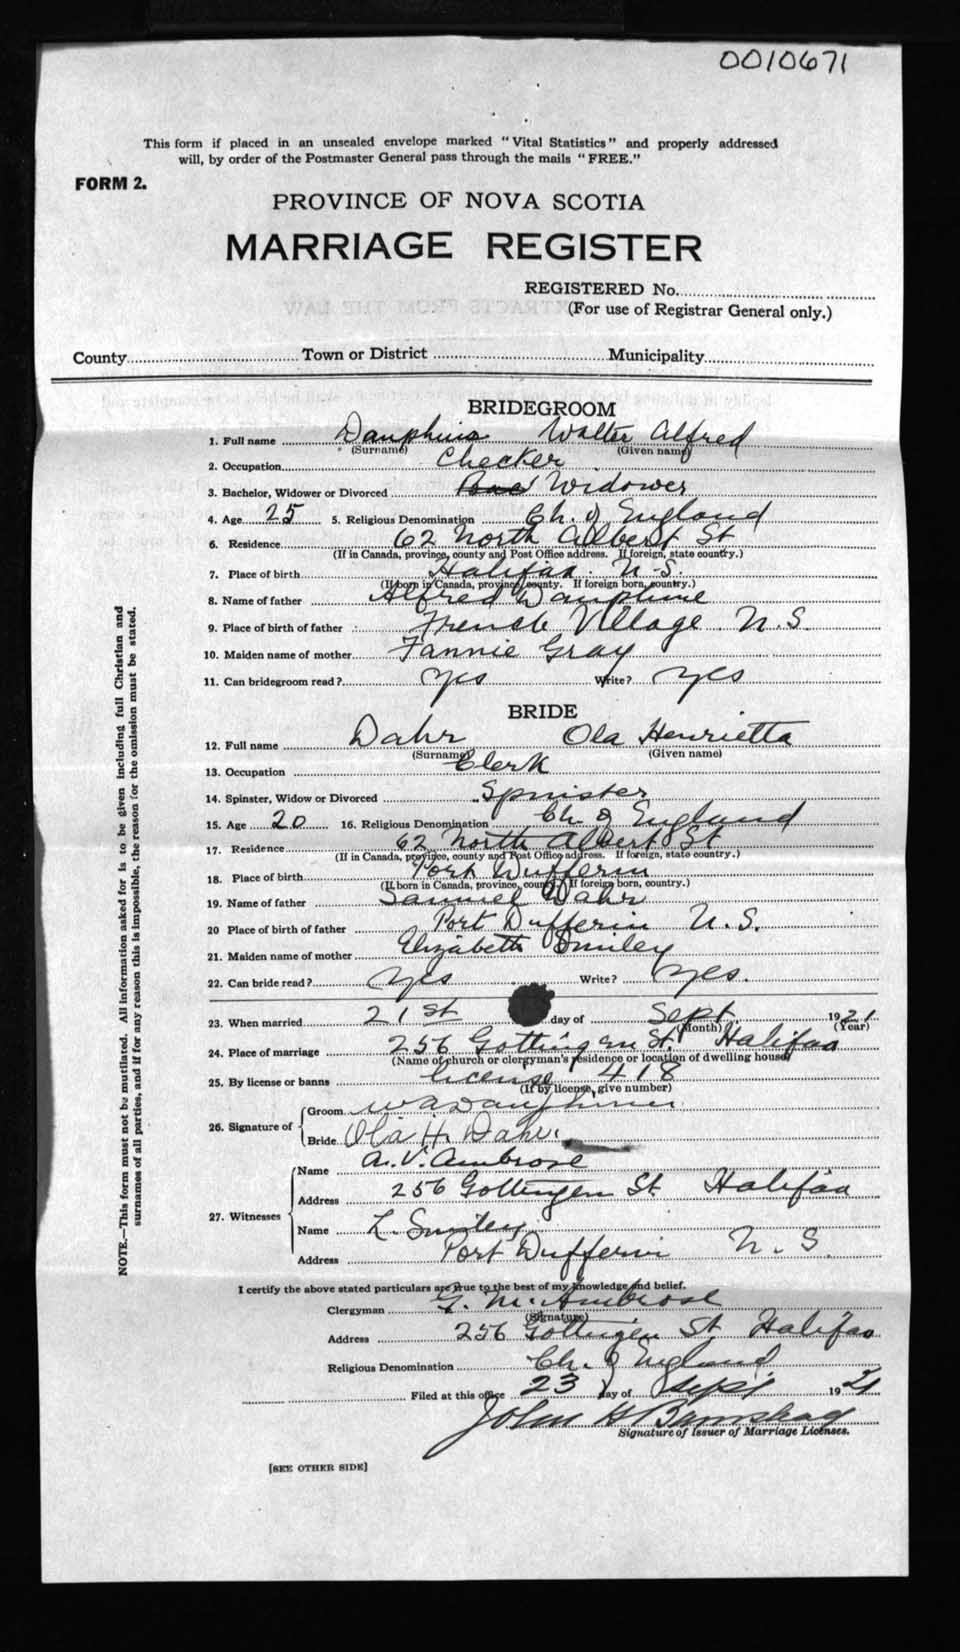 0010671
This form if placed in an unsealed envelope marked "Vital Statistics" and properly addressed
will, by order of the Postmaster General pass through the mails "FREE."
FORM 2.
PROVINCE OF NOVA SCOTIA
MARRIAGE REGISTER
REGISTERED No.
(For use of Registrar General only.)
County Town or District Municipality
BRIDEGROOM
1. Full name Dauphine Walter Alfred
(Surname) (Given name)
2. Occupation Checker
3. Bachelor, Widower or Divorced Widower
4. Age 25 5. Religious Denomination Ch. of England
6. Residence 62 North Albert St
(If in Canada, province, county and Post Office address. If foreign, state country.)
7. Place of birth Halifax N.S.
(If born in Canada, province, county. If foreign born, country.)
8. Name of father Alfred Dauphine
9. Place of birth of father French Village N.S.
10. Maiden name of mother Fannie Gray
11. Can bridegroom read? Yes Write? Yes
BRIDE
12. Full name Dahr Ola Henrietta
(Surname) (Given name)
13. Occupation Clerk
14. Spinster, Widow or Divorced Spinster
15. Age 20 16. Religious Denomination Ch. of England
17. Residence 62 North Albert St
(If in Canada, province, county and Post Office address. If foreign, state country.)
18. Place of birth Port Dufferin
(If born in Canada, province, county. If foreign born, country.)
19. Name of father Samuel Dahr
20 Place of birth of father Port Dufferin N.S.
21. Maiden name of mother Elizabeth Smiley
22. Can bride read? Yes Write? Yes.
23. When married 21st day of Sept. 1921
(Month) (Year)
24. Place of marriage 256 Gottingen St. Halifax
(Name of church or clergyman's residence or location of dwelling house)
25. By license or banns license 418
(If by license, give number)
26. Signature of Groom W A Dauphinee
Bride Ola H. Dahr.
27. Witnesses Name A. V. Ambrose
Address 256 Gottingen St. Halifax
Name L. Smiley
Address Port Dufferin N.S.
I certify the above stated particulars are true to the best of my knowledge and belief.
Clergyman G. M. Ambrose
(Signature)
Address 256 Gottingen St. Halifax
Religious Denomination Ch. of England
Filed at this office 23 day of Sept 1921
John H
Signature of Issuer of Marriage Licenses.
[SEE OTHER SIDE]
NOTE.—This form must not be mutilated. All information asked for is to be given including full Christian and
surnames of all parties, and if for any reason this is impossible, the reason for the omission must be stated.